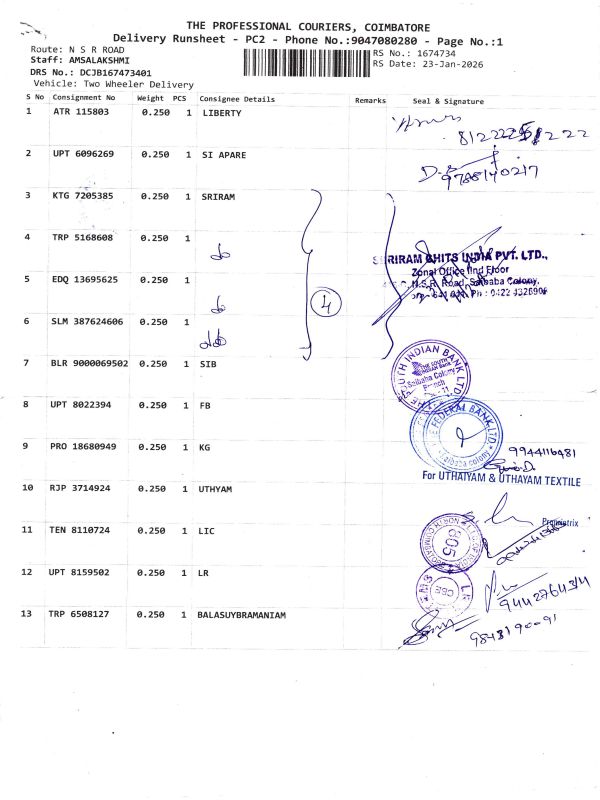 THE PROFESSIONAL COURIERS, COIMBATORE
Delivery Runsheet - PC2 - Phone No.:9047080280 - Page No.:1
Route: N S R ROAD
RS No.: 1674734
Staff: AMSALAKSHMI
RS Date: 23-Jan-2026
DRS No.: DCJB167473401
Vehicle: Two Wheeler Delivery
S No Consignment No Weight PCS Consignee Details Remarks Seal & Signature
1 ATR 115803 0.250 1 LIBERTY
2 UPT 6096269 0.250 1 SI APARE
9788140217
3 KTG 7205385 0.250 1 SRIRAM
4 TRP 5168608 0.250 1 do
SHRIRAM CHITS INDIA PVT. LTD.,
Zonal Office IInd Floor
N.S.R. Road, Saibaba Colony,
5 EDQ 13695625 0.250 1 do
4
6 SLM 387624606 0.250 1 do
7 BLR 9000069502 0.250 1 SIB
THE SOUTH INDIAN BANK LTD.
THE SOUTH INDIAN BANK
Saibaba Colony
Branch
8 UPT 8022394 0.250 1 FB
THE FEDERAL BANK LTD.
Saibaba colony
9 PRO 18680949 0.250 1 KG
9944116481
For UTHAIYAM & UTHAYAM TEXTILE
10 RJP 3714924 0.250 1 UTHYAM
Proprietrix
11 TEN 8110724 0.250 1 LIC
805
12 UPT 8159502 0.250 1 LR
CBE
13 TRP 6508127 0.250 1 BALASUYBRAMANIAM